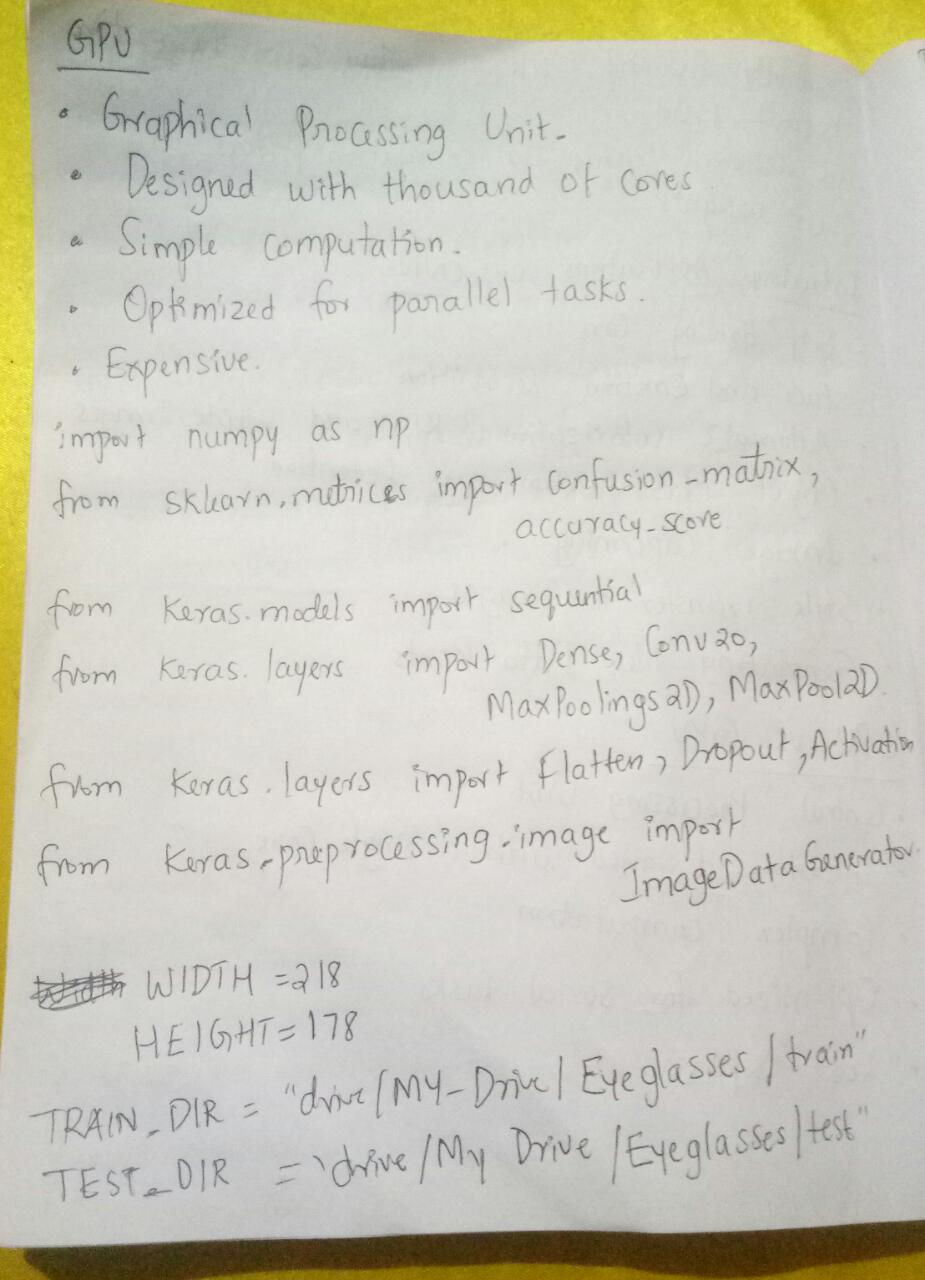 GPU
• Graphical Processing Unit.
• Designed with thousand of cores
• Simple computation.
• Optimized for parallel tasks.
• Expensive.
import numpy as np
from sklearn.metrices import confusion_matrix,
accuracy_score
from Keras.models import sequential
from Keras.layers import Dense, Conv2D,
MaxPoolings2D, MaxPool2D.
from Keras.layers import flatten, Dropout, Activation
from Keras.preprocessing.image import
ImageDataGenerator.
WIDTH = 218
HEIGHT = 178
TRAIN_DIR = "drive/MY-Drive/Eyeglasses/train"
TEST_DIR = 'drive/My Drive/Eyeglasses/test"